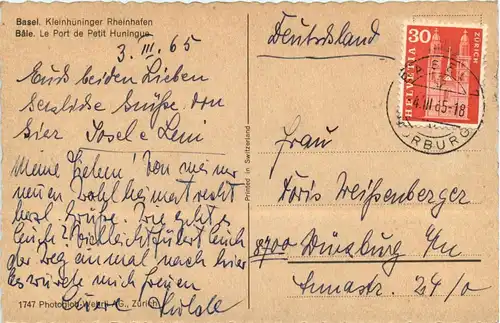 Basel. Kleinhüninger Rheinhafen
Bâle. Le Port de Petit Huningue
3. III. 65
Euch beiden Lieben
herzliche Grüße von
hier Josef e Leni
Meine Lieben! Von meiner
neuen Wahlheimat recht
herzl. Grüße. Wie geht es
Euch? Vielleicht führt Euch
der Weg einmal nach hier
Es würde mich freuen
Euer
1747 Photoglob-Wehrli AG., Zürich
Printed in Switzerland
Deutschland
30
HELVETIA
ZÜRICH
4.III.65-18
Frau
Doris Weißenberger
8700 Würzburg a/M
Annastr. 24/0